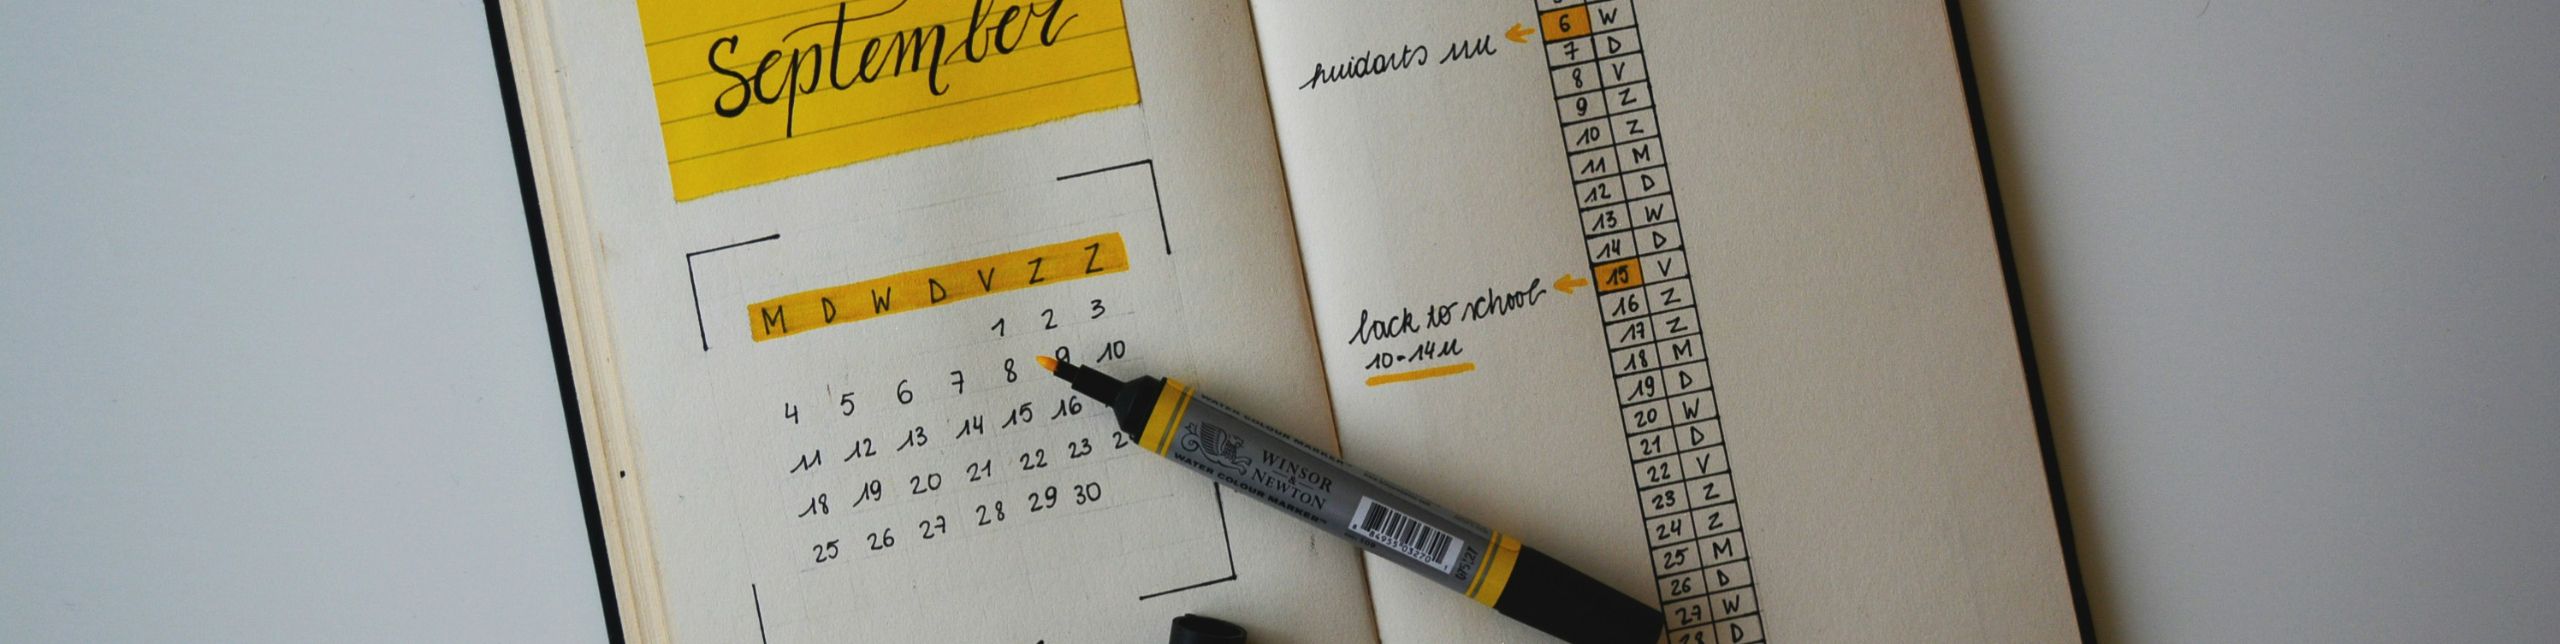 September
M D W D V Z Z
1 2 3
4 5 6 7 8 9 10
11 12 13 14 15 16
18 19 20 21 22 23
25 26 27 28 29 30
6 W
7 D
8 V
9 Z
10 Z
11 M
12 D
13 W
14 D
15 V
16 Z
17 Z
18 M
19 D
20 W
21 D
22 V
23 Z
24 Z
25 M
26 D
27 W
28 D
huidarts
back to school
10-14u
WATER COLOUR MARKER
WINSOR
&
NEWTON
WATER COLOUR MARKER™